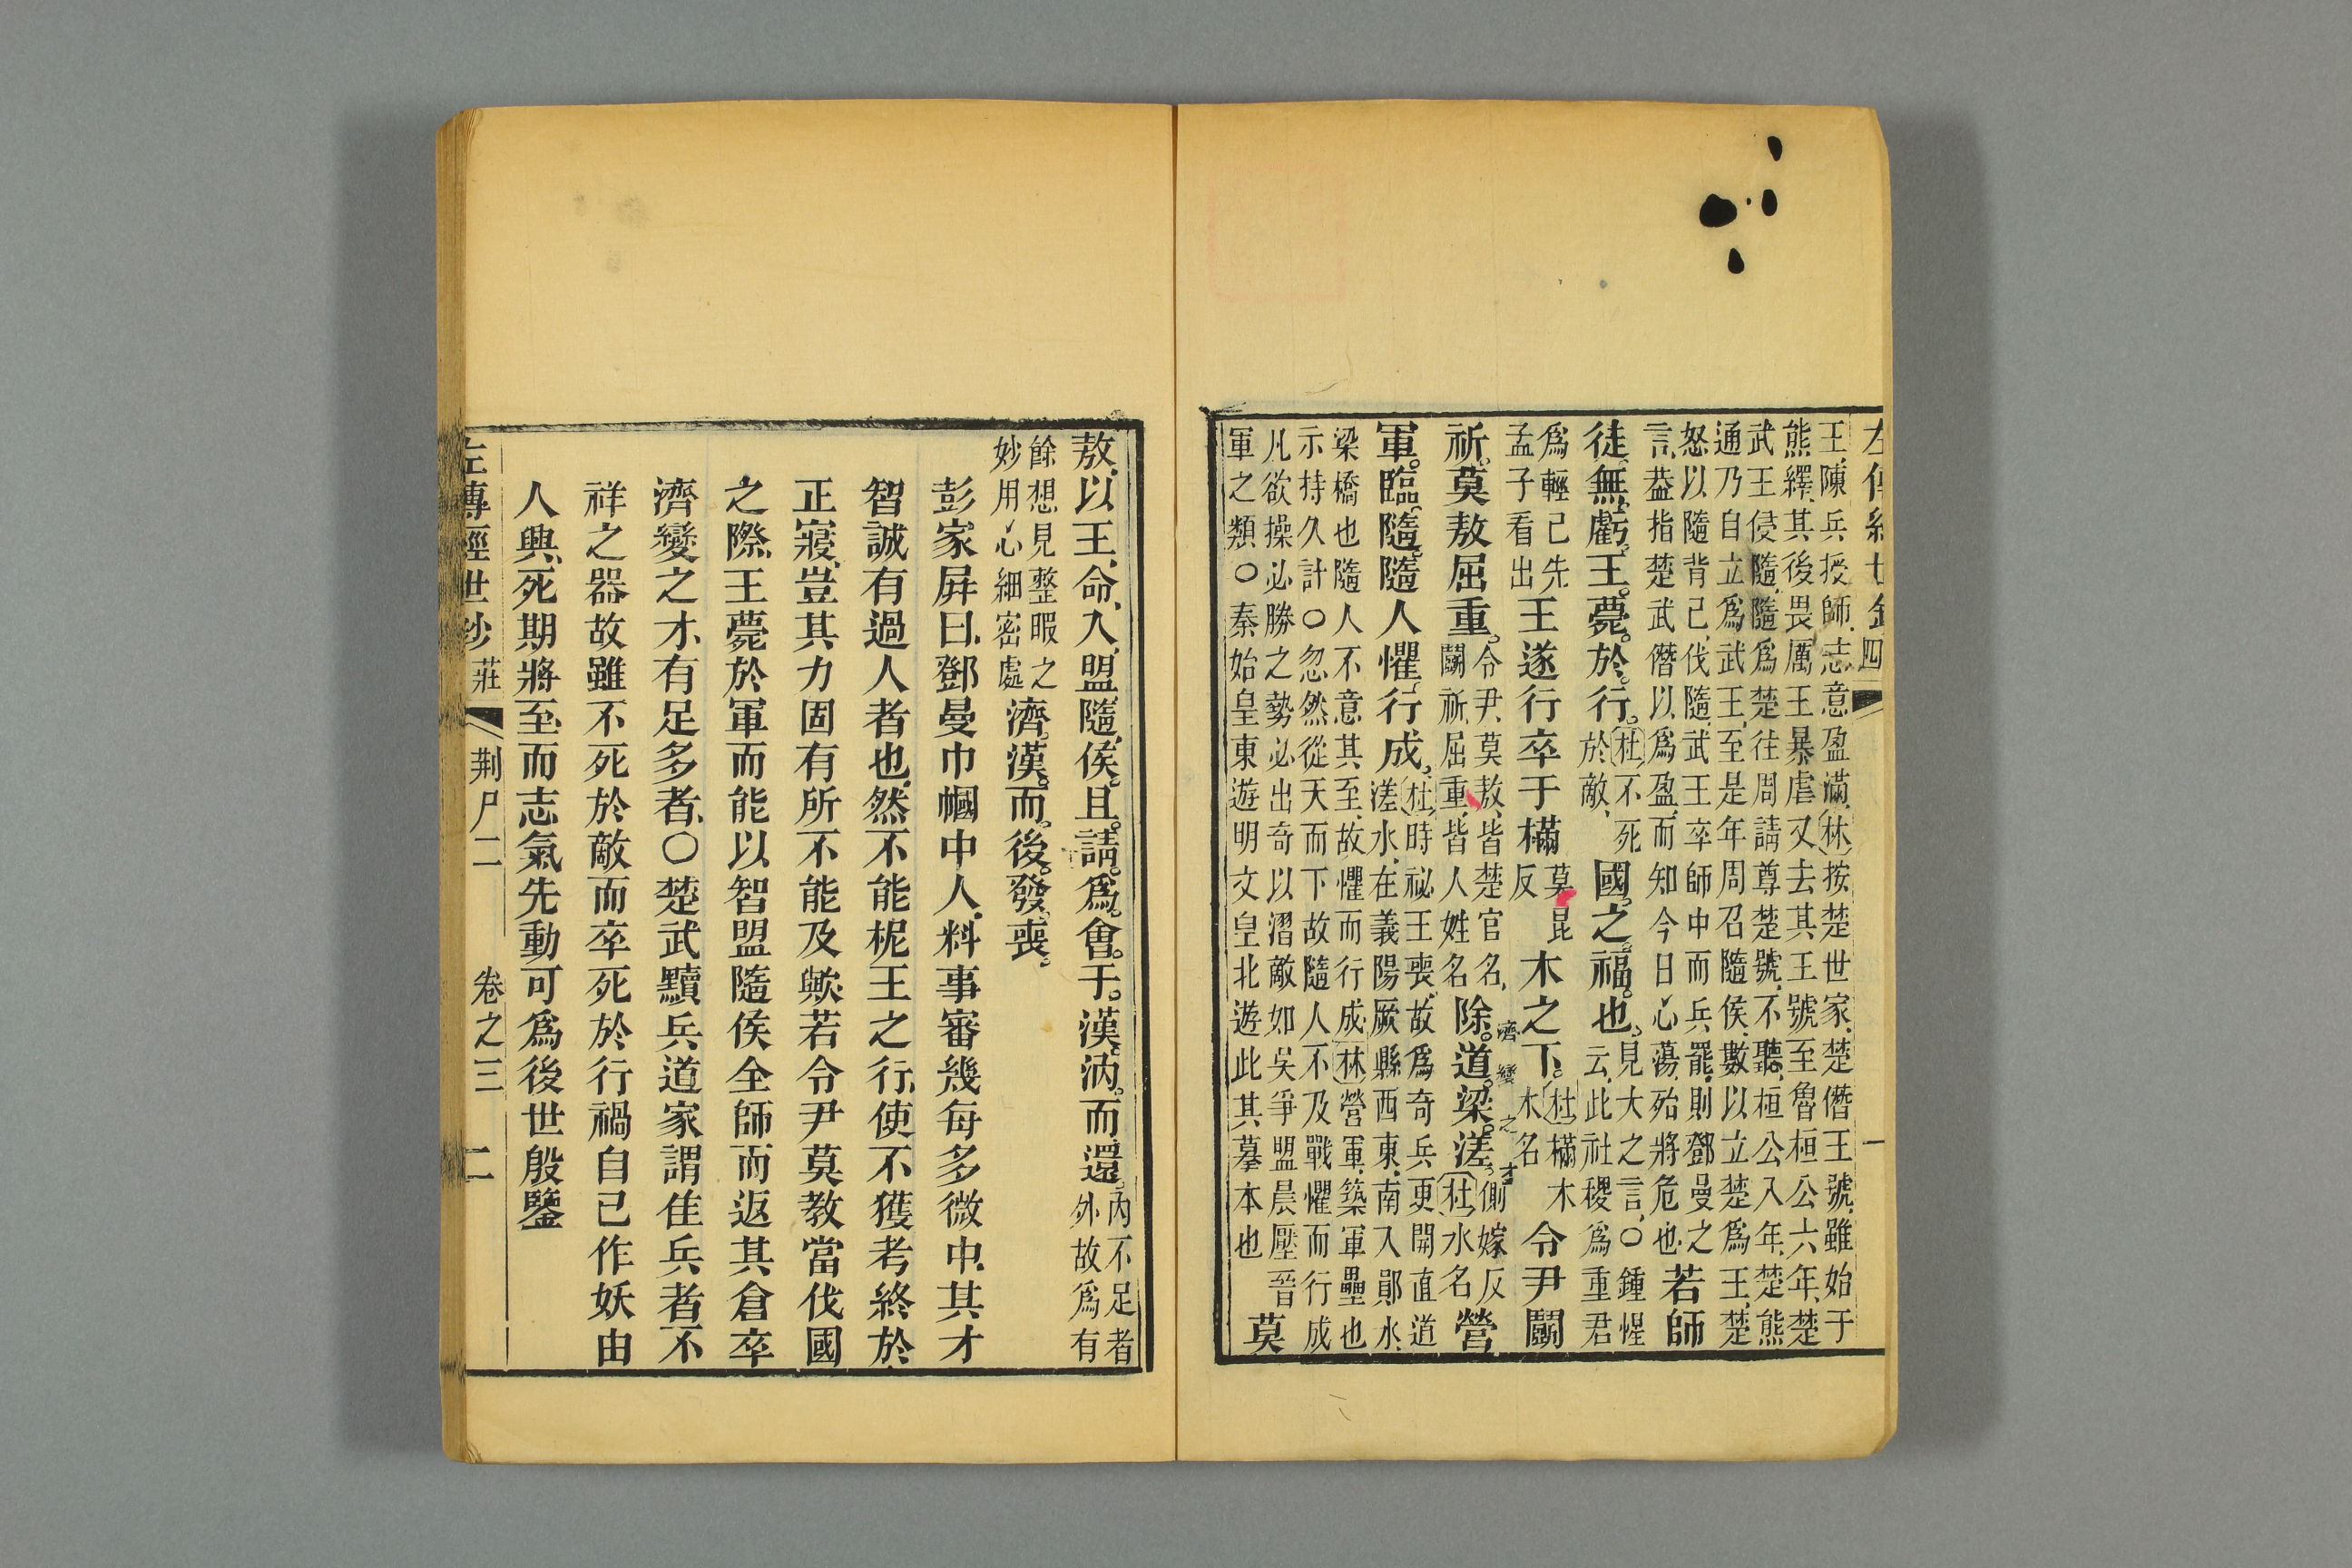 左傳經世鈔 四 一
王陳兵授師志意盈滿林按楚世家楚僭王號雖始于
熊繹其後畏厲王暴虐又去其王號至魯桓公六年楚
武王侵隨隨爲楚徃周請尊楚號不聽桓公入年楚熊
通乃自立爲武王至是年周召隨侯數以立楚爲王楚
怒以隨背己伐隨武王卒師中而兵罷則鄧曼之
言葢指楚武僭以爲盈而知今日心蕩殆將危也若師
徒無虧王薨於行杜不死於敵國之福也見大之言○鍾惺云此社稷爲重君
爲輕己先孟子看出王遂行卒于樠莫昆反木之下杜樠木木名令尹鬭
祈莫敖屈重令尹莫敖皆楚官名鬭祈屈重皆人姓名除道梁溠側嫁反杜水名營
濟變之才
軍臨隨隨人懼行成杜時祕王喪故爲奇兵更開直道溠水在義陽厥縣西東南入鄖水
梁橋也隨人不意其至故懼而行成林營軍築軍壘也
示持久計○忽然從天而下故隨人不及戰懼而行成
凡欲操必勝之勢必出奇以溜敵如吳爭盟晨壓晉
軍之類○秦始皇東遊明文皇北遊此其摹本也莫
敖以王命入盟隨侯且請爲會于漢汭而還內不足者外故爲有
餘想見整暇之妙用心細密處濟漢而後發喪
彭家屛曰鄧曼巾幗中人料事審幾每多微中其才
智誠有過人者也然不能柅王之行使不獲考終於
正寢豈其力固有所不能及歟若令尹莫敎當伐國
之際王薨於軍而能以智盟隨侯全師而返其倉卒
濟變之才有足多者○楚武黷兵道家謂佳兵者不
祥之器故雖不死於敵而卒死於行禍自己作妖由
人興死期將至而志氣先動可爲後世殷鑒
左傳經世鈔 莊 荆尸二 卷之三 二